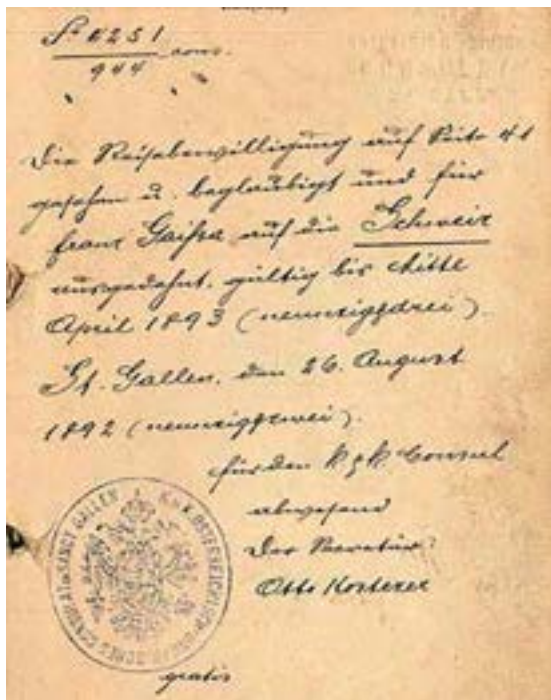 № 251
944 cons.
Die Reisebewilligung auf Seite 41
gesehen u. beglaubigt und für
Franz auf die Schweiz
ausgedehnt, gültig bis Mitte
April 1893 (neunzigdrei).
St. Gallen, den 26. August
1892 (neunzigzwei).
für den k. k. Consul
abwesend
Der Secretär:
Otto
K. u. K. OESTERREICHISCH-UNGARISCHES CONSULAT in SANCT GALLEN
gratis